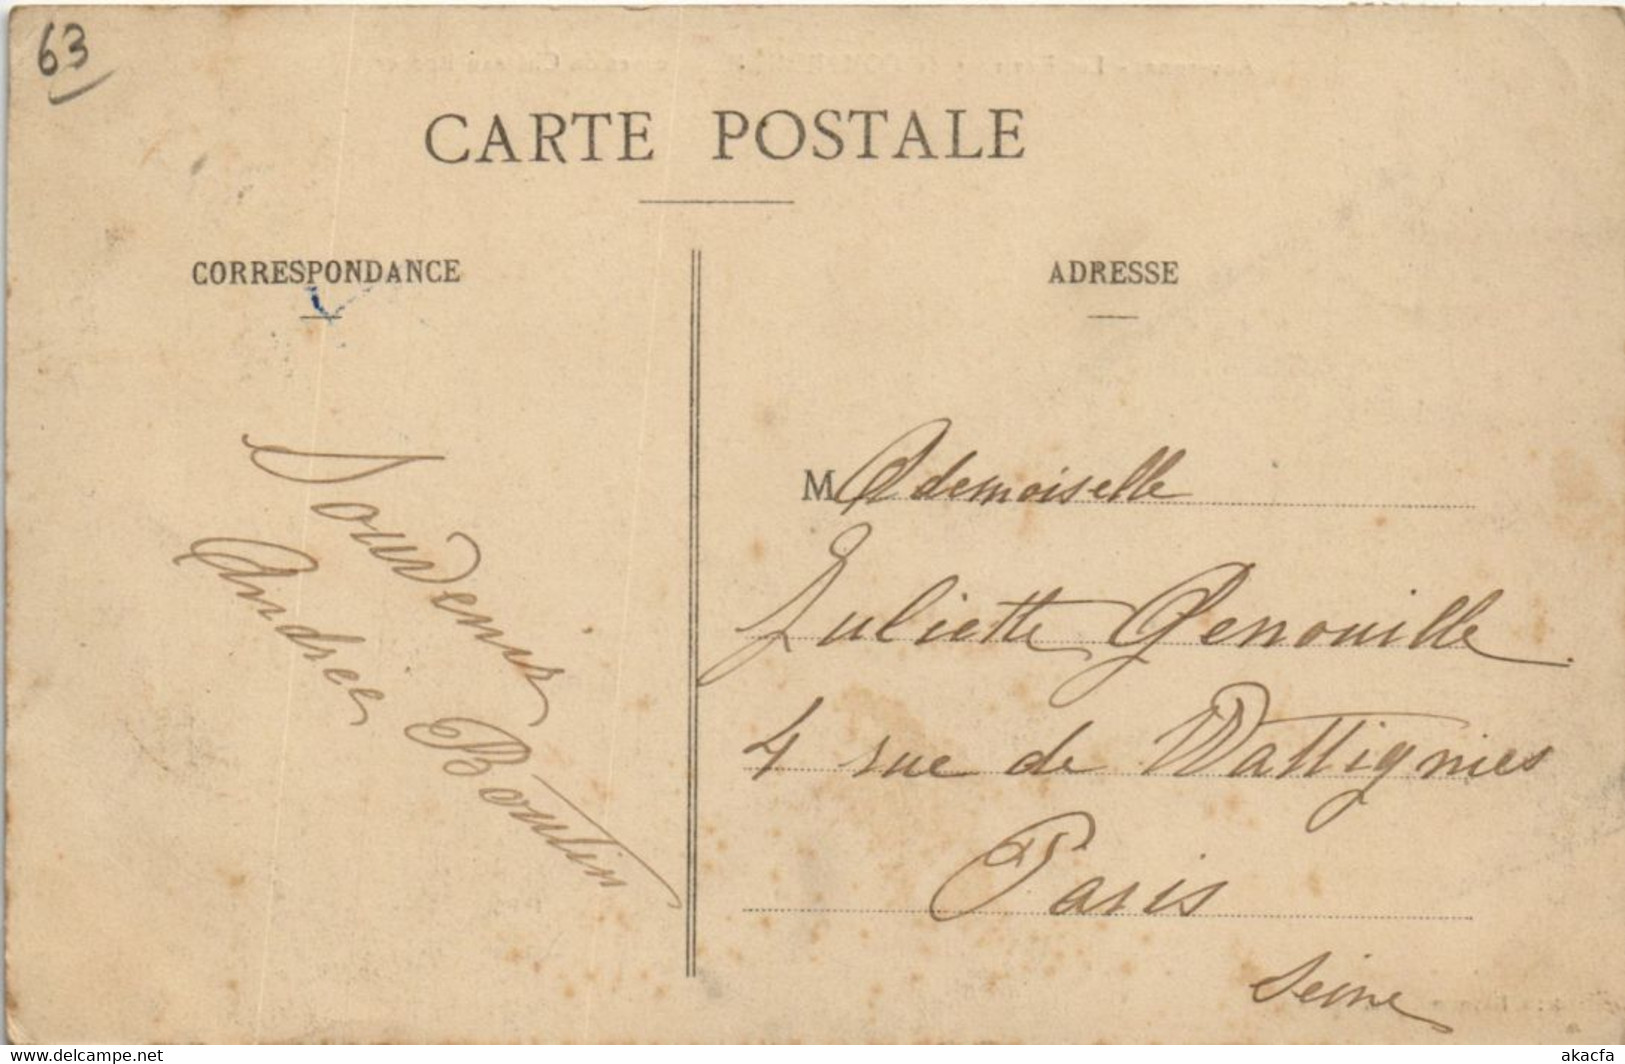 63
CARTE POSTALE
CORRESPONDANCE
Souvenir
Andrée Boutin
ADRESSE
Mademoiselle
Juliette Genouille
4 rue de Wattignies
Paris
Seine
www.delcampe.com
akacfa